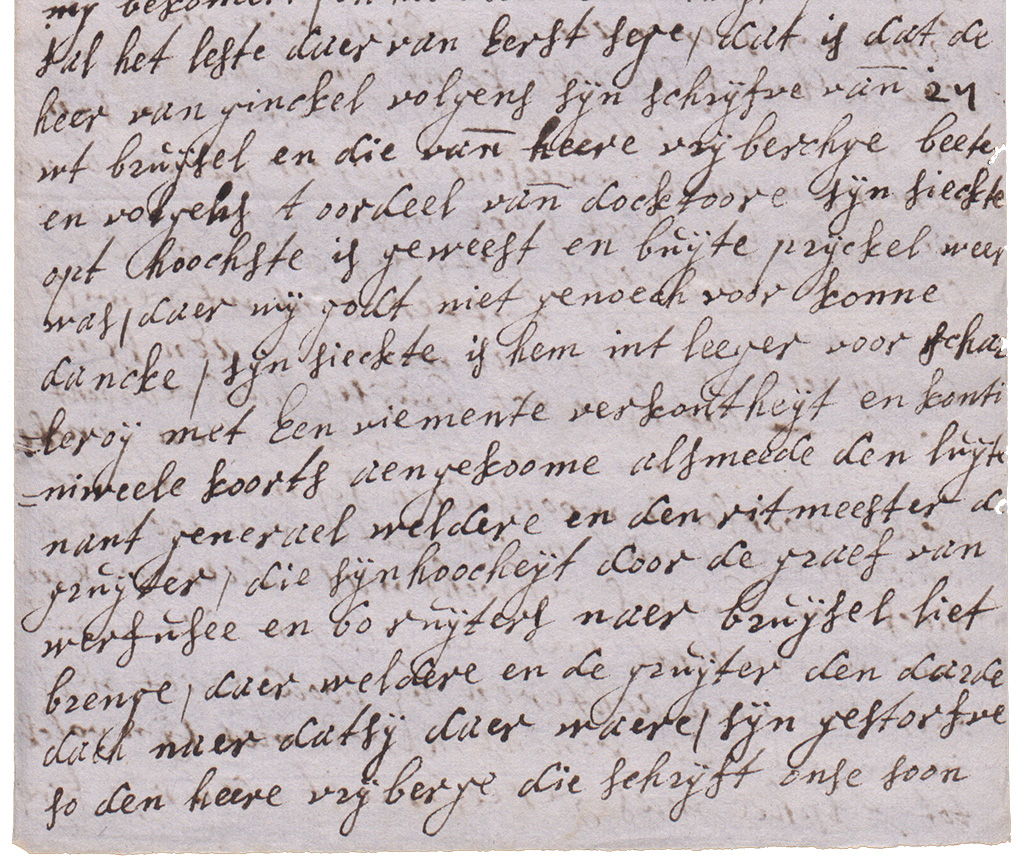 my bekomert
sal het leste daer van eerst sege / dat is dat de
heer van ginckel volgens sÿn schrijfve van̄ 24
wt bruÿsel en die van̄ heere vrÿberchge beeter
en volgens t oordeel van̄ docktoore sÿn sieckte
opt hoochste is geweest en buÿte prijckel weer
was / daer wÿ godt niet genoech voor konne
dancke / sÿn sieckte is hem int leeger voor schar
=leroÿ met een viemente verkoutheÿt en konti
=niweele koorts aengekoome alsmeede den luÿte
nant generael weldere en den ritmeester de
gruÿter / die sÿn hoocheÿt door de graef van
werfusee en 60 ruÿters naer bruÿsel liet
brenge / daer weldere en de gruÿter den darde
dach naer datsÿ daer waere / sÿn gestorfve
so den heere vrÿberge die schrijft onse soon